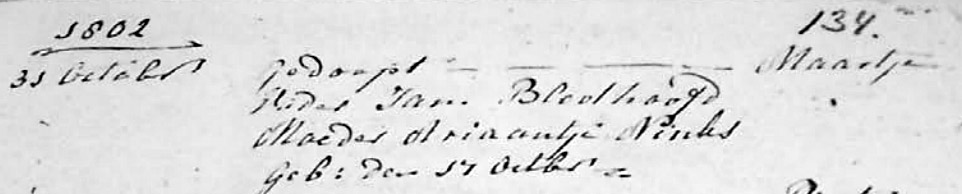 1802 134.
31 Octobr gedoopt — — — Maartje
Vader Jan Bloothoofd
Moeder Ariaantje Vinks
Geb: den 17 Octbr